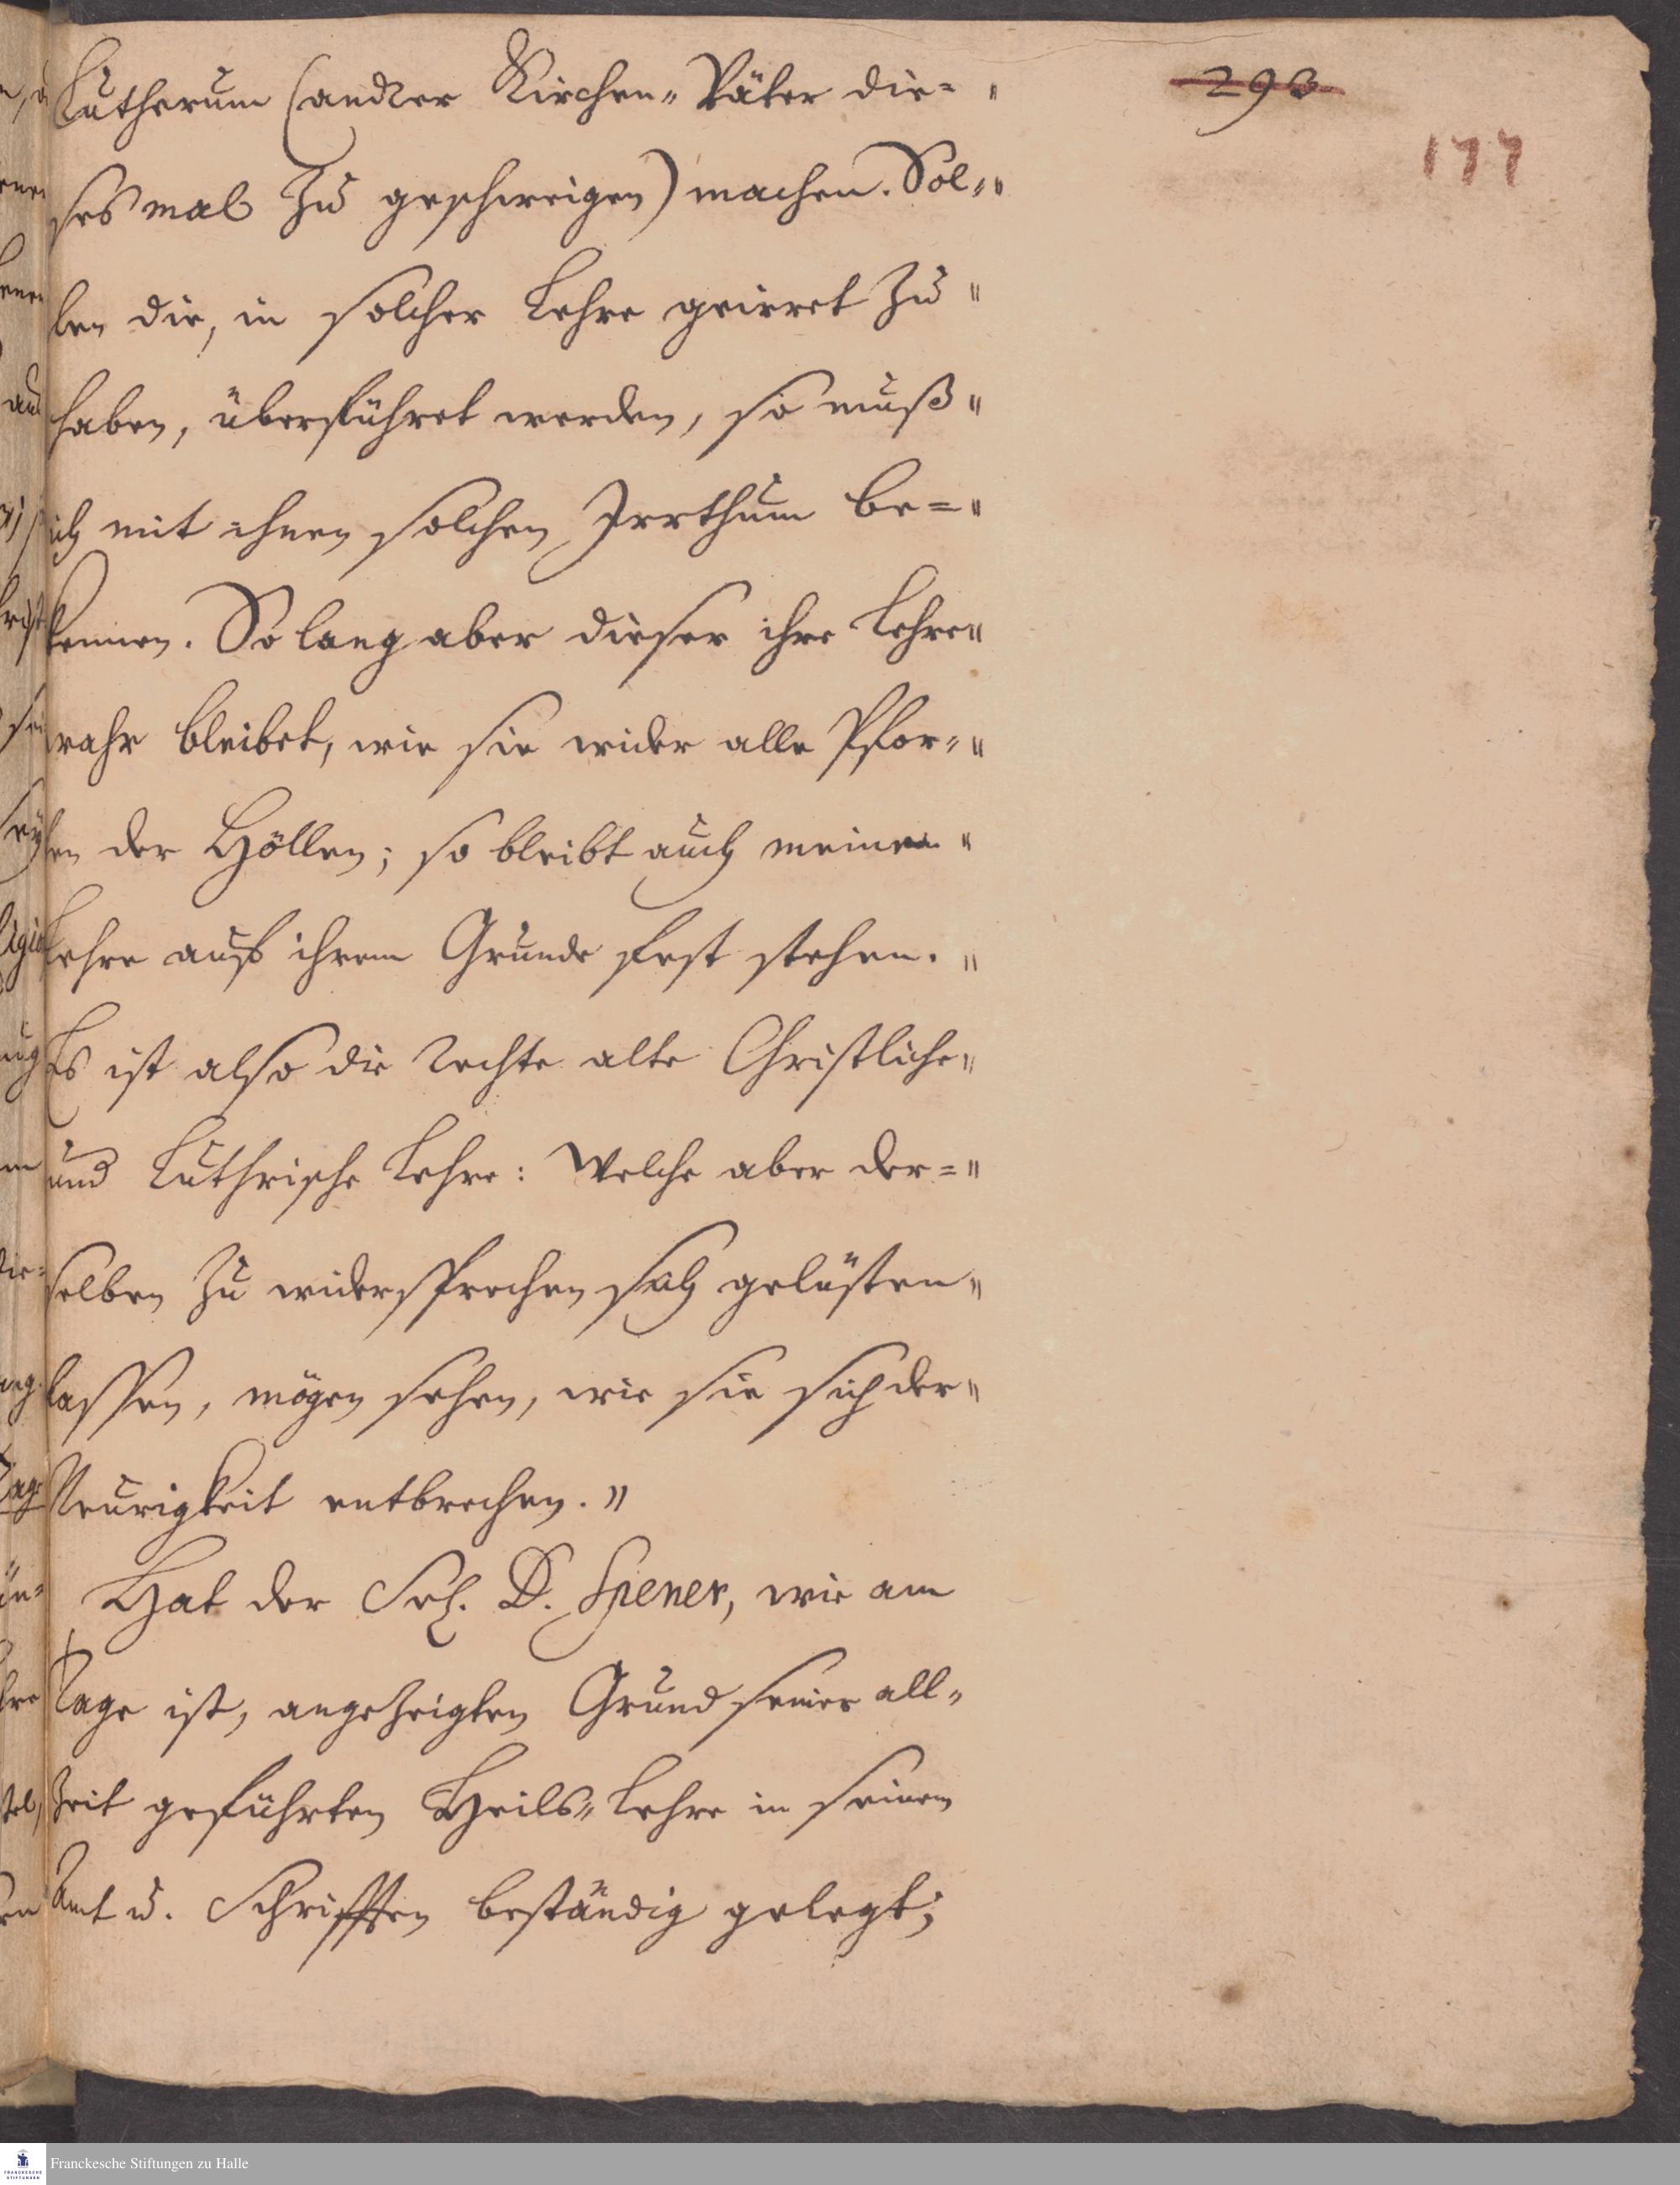 293
177
Lutherum (andrer Kirchen-Väter die= "
ses mal zu geschweigen) machen. Sol= "
len die, in solcher Lehre geirret zu "
haben, überführet werden, so muß "
ich mit ihnen solchen Irrthum be= "
kennen. So lang aber dieser ihre Lehre "
wahr bleibet, wie sie wider alle Pfor= "
ten der Höllen; so bleibt auch meine "
Lehre auf ihrem Grunde fest stehen. "
Es ist also die rechte alte Christliche "
und Luthrische Lehre: Welche aber der= "
selben zu widersprechen sich gelüsten "
lassen, mögen sehen, wie sie sich der "
Neurigkeit entbrechen. "
Hat der Sel. D. Spener, wie am
Tage ist, angezeigten Grund seiner all=
zeit geführten Heils=Lehre in seinem
Amt u. Schrifften beständig gelegt;
Franckesche Stiftungen zu Halle